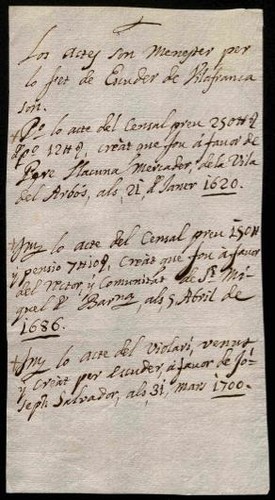 Los actes son Menester per
lo fet de Escuder de Vilafranca
son.
+ Pº lo acte del Censal preu 250 ₶
pº 12 ₶, creat que fou á favor de
Pere Llacuna Mercader, de la Vila
del Arbós, als, 21, de Janer 1620.
+ Itt. lo acte del Censal preu 150 ₶
y pensió 7 ₶ 10 s, Creat que fou á favor
del Rector, y Comunitat de St. Mi-
quel de Barna, als, 5 Abril de
1686.
+ Itt. lo acte del Violari, venut
y Creat per Escuder, á favor de Jo-
seph Salvador, als, 31, mars 1700.